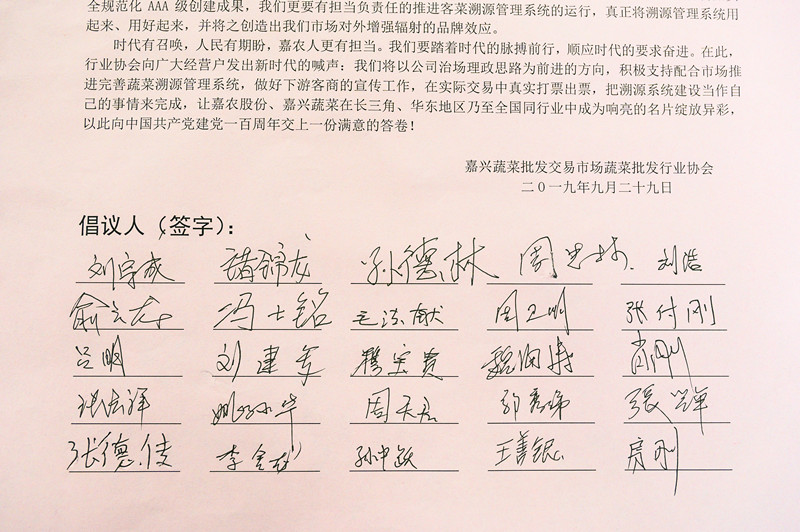 全规范化 AAA 级创建成果，我们更要有担当负责任的推进客菜溯源管理系统的运行，真正将溯源管理系统用
起来、用好起来，并将之创造出我们市场对外增强辐射的品牌效应。
时代有召唤，人民有期盼，嘉农人更有担当。我们要踏着时代的脉搏前行，顺应时代的要求奋进。在此，
行业协会向广大经营户发出新时代的喊声：我们将以公司治场理政思路为前进的方向，积极支持配合市场推
进完善蔬菜溯源管理系统，做好下游客商的宣传工作，在实际交易中真实打票出票，把溯源系统建设当作自
己的事情来完成，让嘉农股份、嘉兴蔬菜在长三角、华东地区乃至全国同行业中成为响亮的名片绽放异彩，
以此向中国共产党建党一百周年交上一份满意的答卷！
嘉兴蔬菜批发交易市场蔬菜批发行业协会
二〇一九年九月二十九日
倡议人（签字）：
刘宗成 孙德林 刘浩
冯士铭 周卫明 张付刚
吕明 刘建军 肖刚
姚小华 周天君
张德传 孙中跃 王善银 房刚